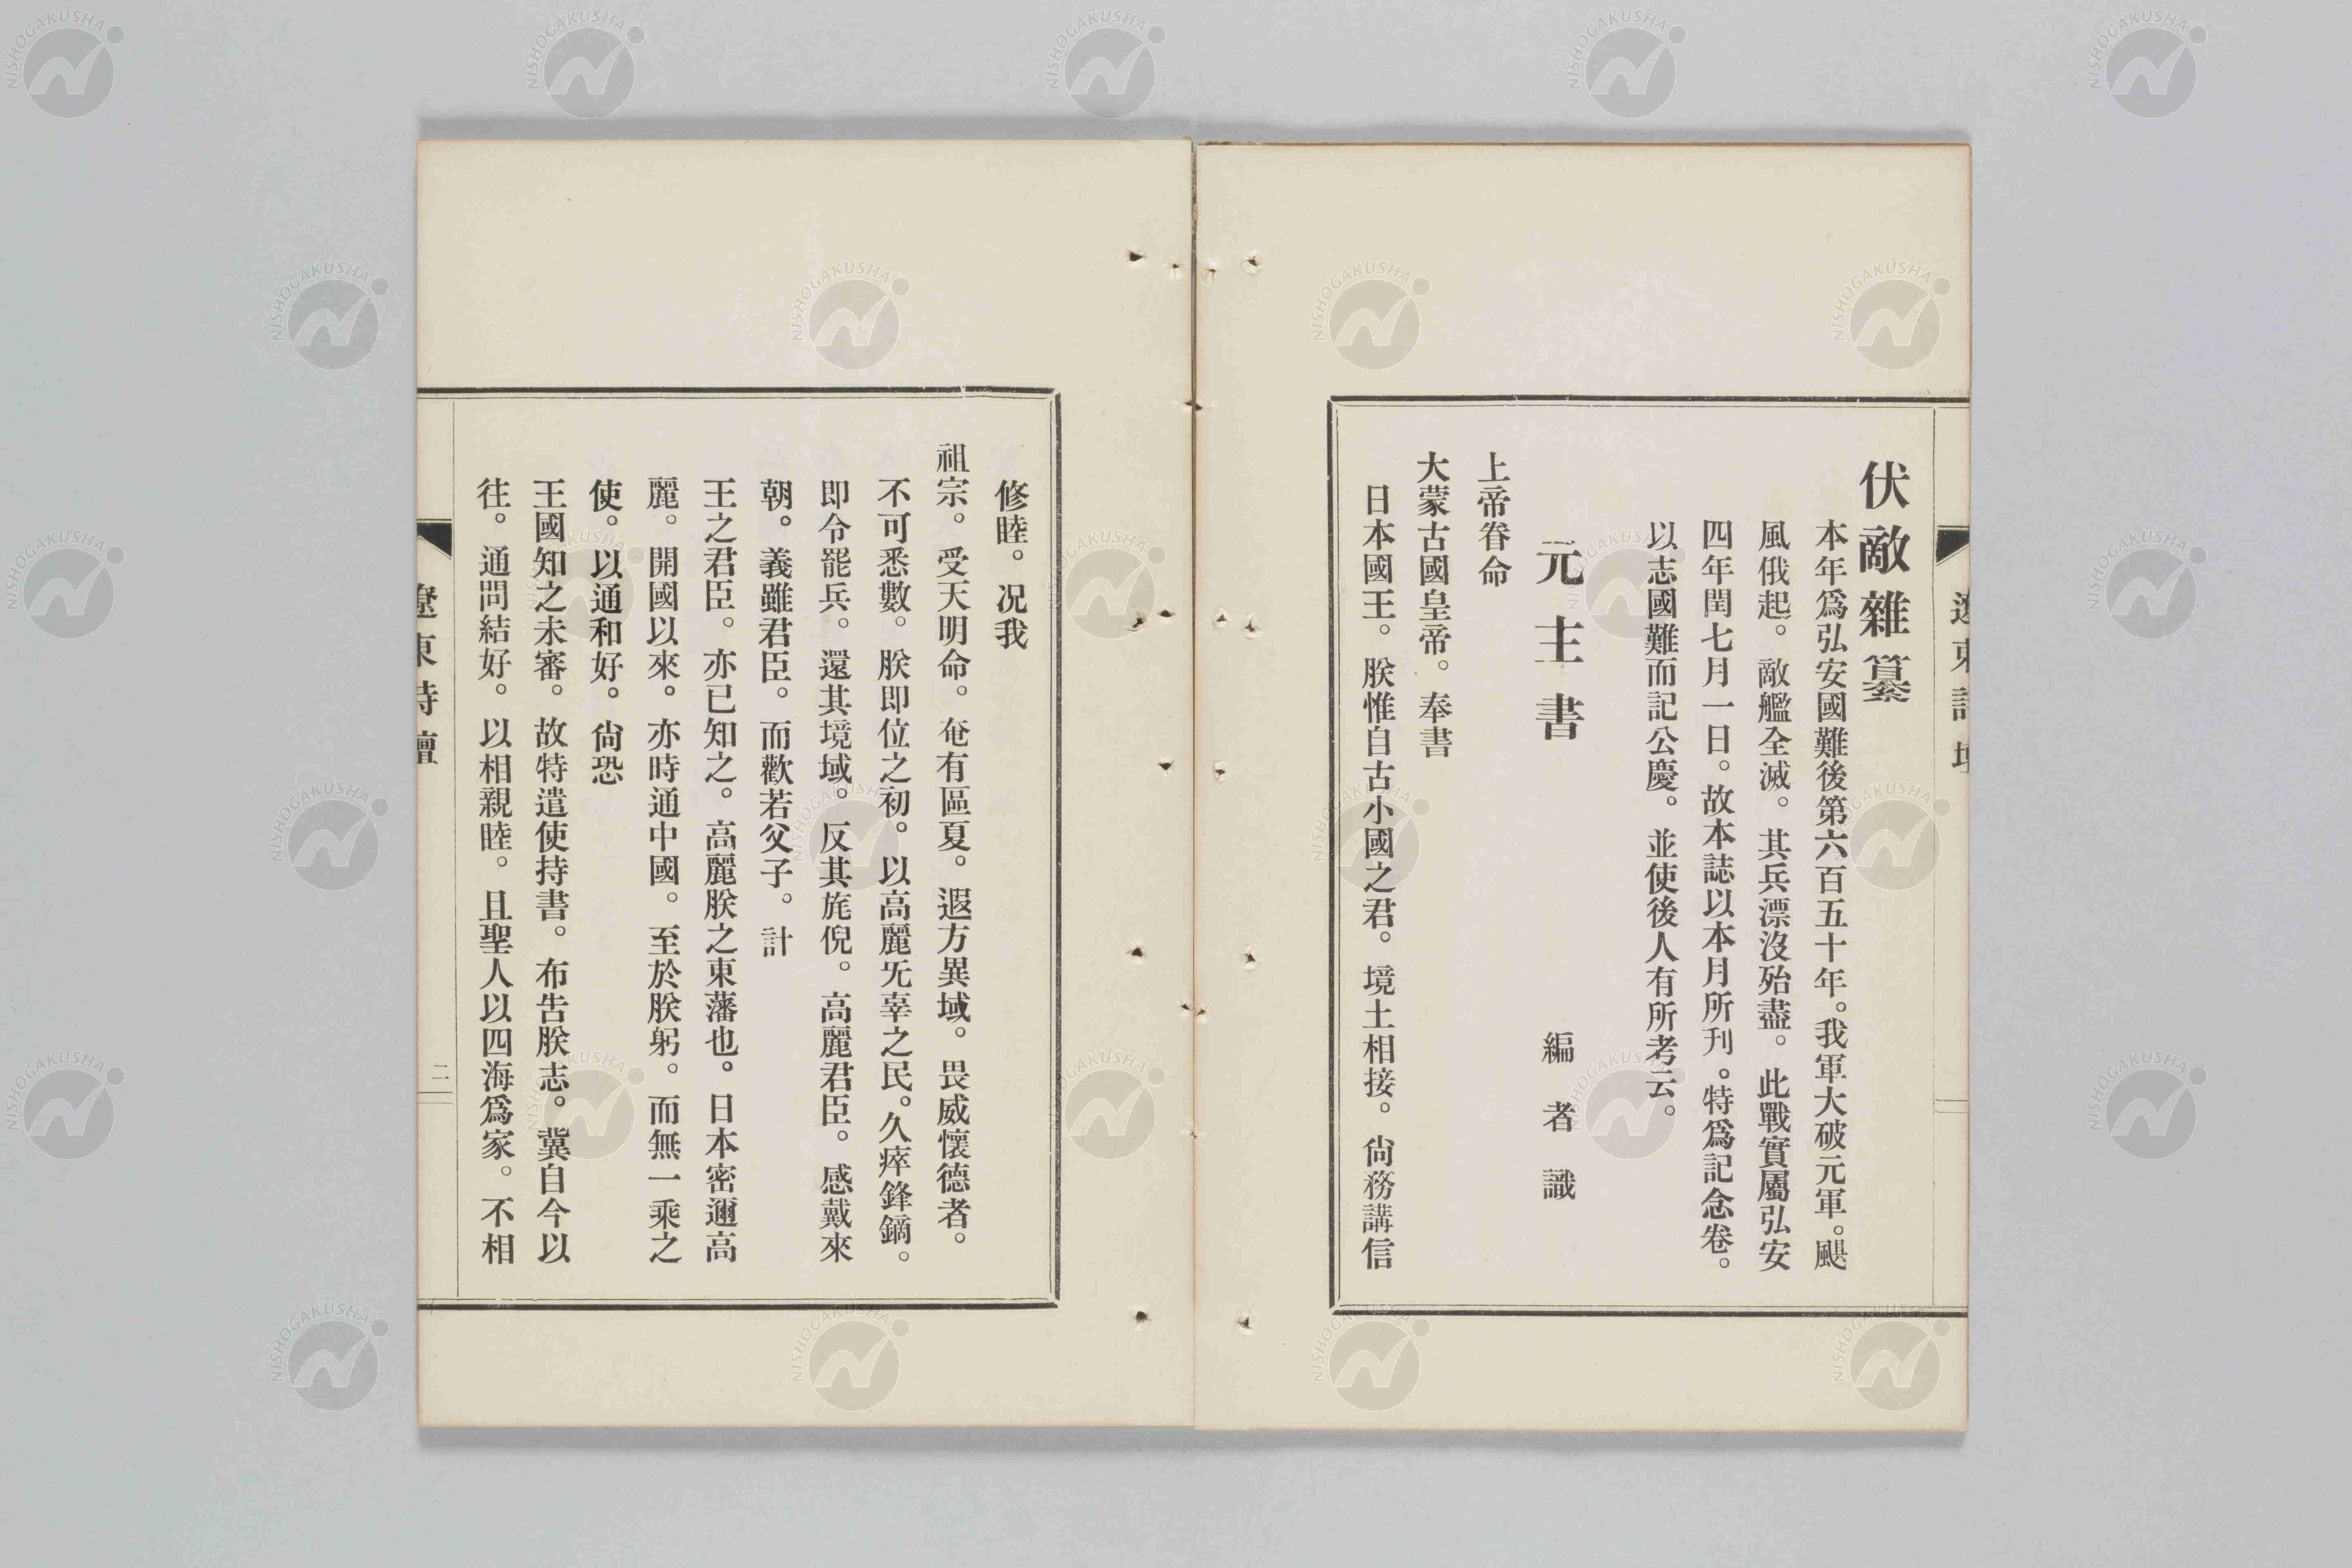 遼東詩壇
伏敵雜纂
本年爲弘安國難後第六百五十年。我軍大破元軍。颶
風俄起。敵艦全滅。其兵漂沒殆盡。此戰實屬弘安
四年閏七月一日。故本誌以本月所刊。特爲記念卷。
以志國難而記公慶。並使後人有所考云。
編者識
元主書
上帝眷命
大蒙古國皇帝。奉書
日本國王。朕惟自古小國之君。境土相接。尙務講信
修睦。况我
祖宗。受天明命。奄有區夏。遐方異域。畏威懷德者。
不可悉數。朕即位之初。以高麗旡辜之民。久瘁鋒鏑。
即令罷兵。還其境域。反其旄倪。高麗君臣。感戴來
朝。義雖君臣。而歡若父子。計
王之君臣。亦已知之。高麗朕之東藩也。日本密邇高
麗。開國以來。亦時通中國。至於朕躬。而無一乘之
使。以通和好。尙恐
王國知之未審。故特遣使持書。布告朕志。冀自今以
往。通問結好。以相親睦。且聖人以四海爲家。不相
遼東詩壇
二
NISHOGAKUSHA